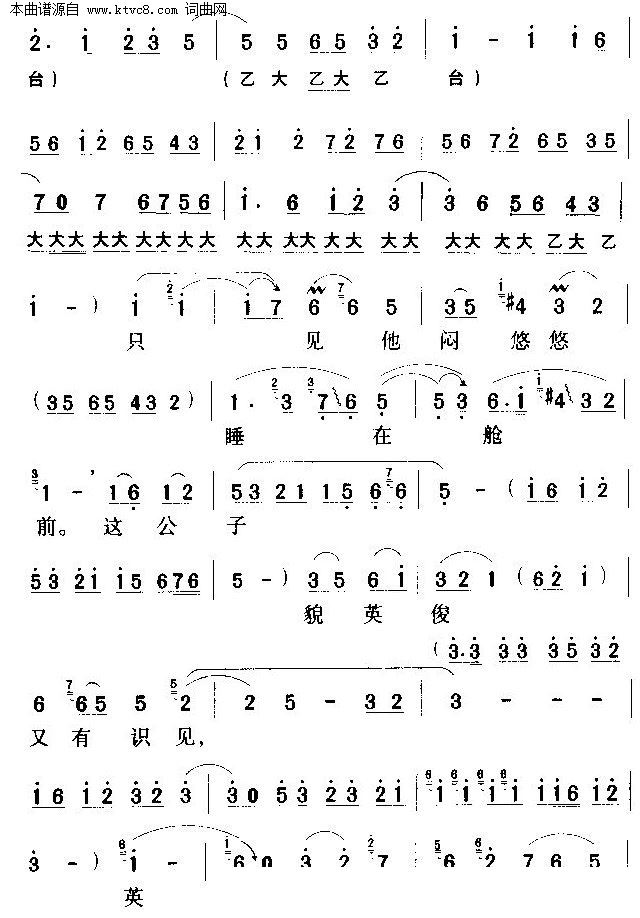 本曲谱源自 www.ktvc8.com 词曲网
2. 1 23 5 | 5 5 65 32 | 1 - 1 16
台） （乙 大 乙大 乙 台）
56 12 65 43 | 21 2 72 76 | 56 72 65 35
70 7 6756 | 1. 6 12 3 | 3 6 56 43
大大大 大大 大大 大大 大大 大大大 大大 大大 大大 大大 乙大 乙
1 - ) 1 2 1 | 17 6 7 6 5 | 35 1 #4 3 2
只 见 他 闷 悠 悠
( 35 65 432 ) | 1. 2 3 3 7 6 5 | 53 6.1 1 #4 32
睡 在 舱
3 1 - ’ 16 12 | 5321 15 6 7 6 | 5 - ( 16 12
前。这 公 子
53 21 15 676 | 5 - ) 35 61 | 32 1 ( 62 1 )
貌 英 俊
( 3.3 33 35 32
6 7 65 5 5 2 | 2 5 - 32 | 3 - - -
又 有 识 见，
16 12 32 3 | 30 53 23 21 | 6 1 6 1 6 1 6 1 116 12
3 - ) 6 1 - | 1 60 3 2 2 7 | 6 6 6 2 76 5
英